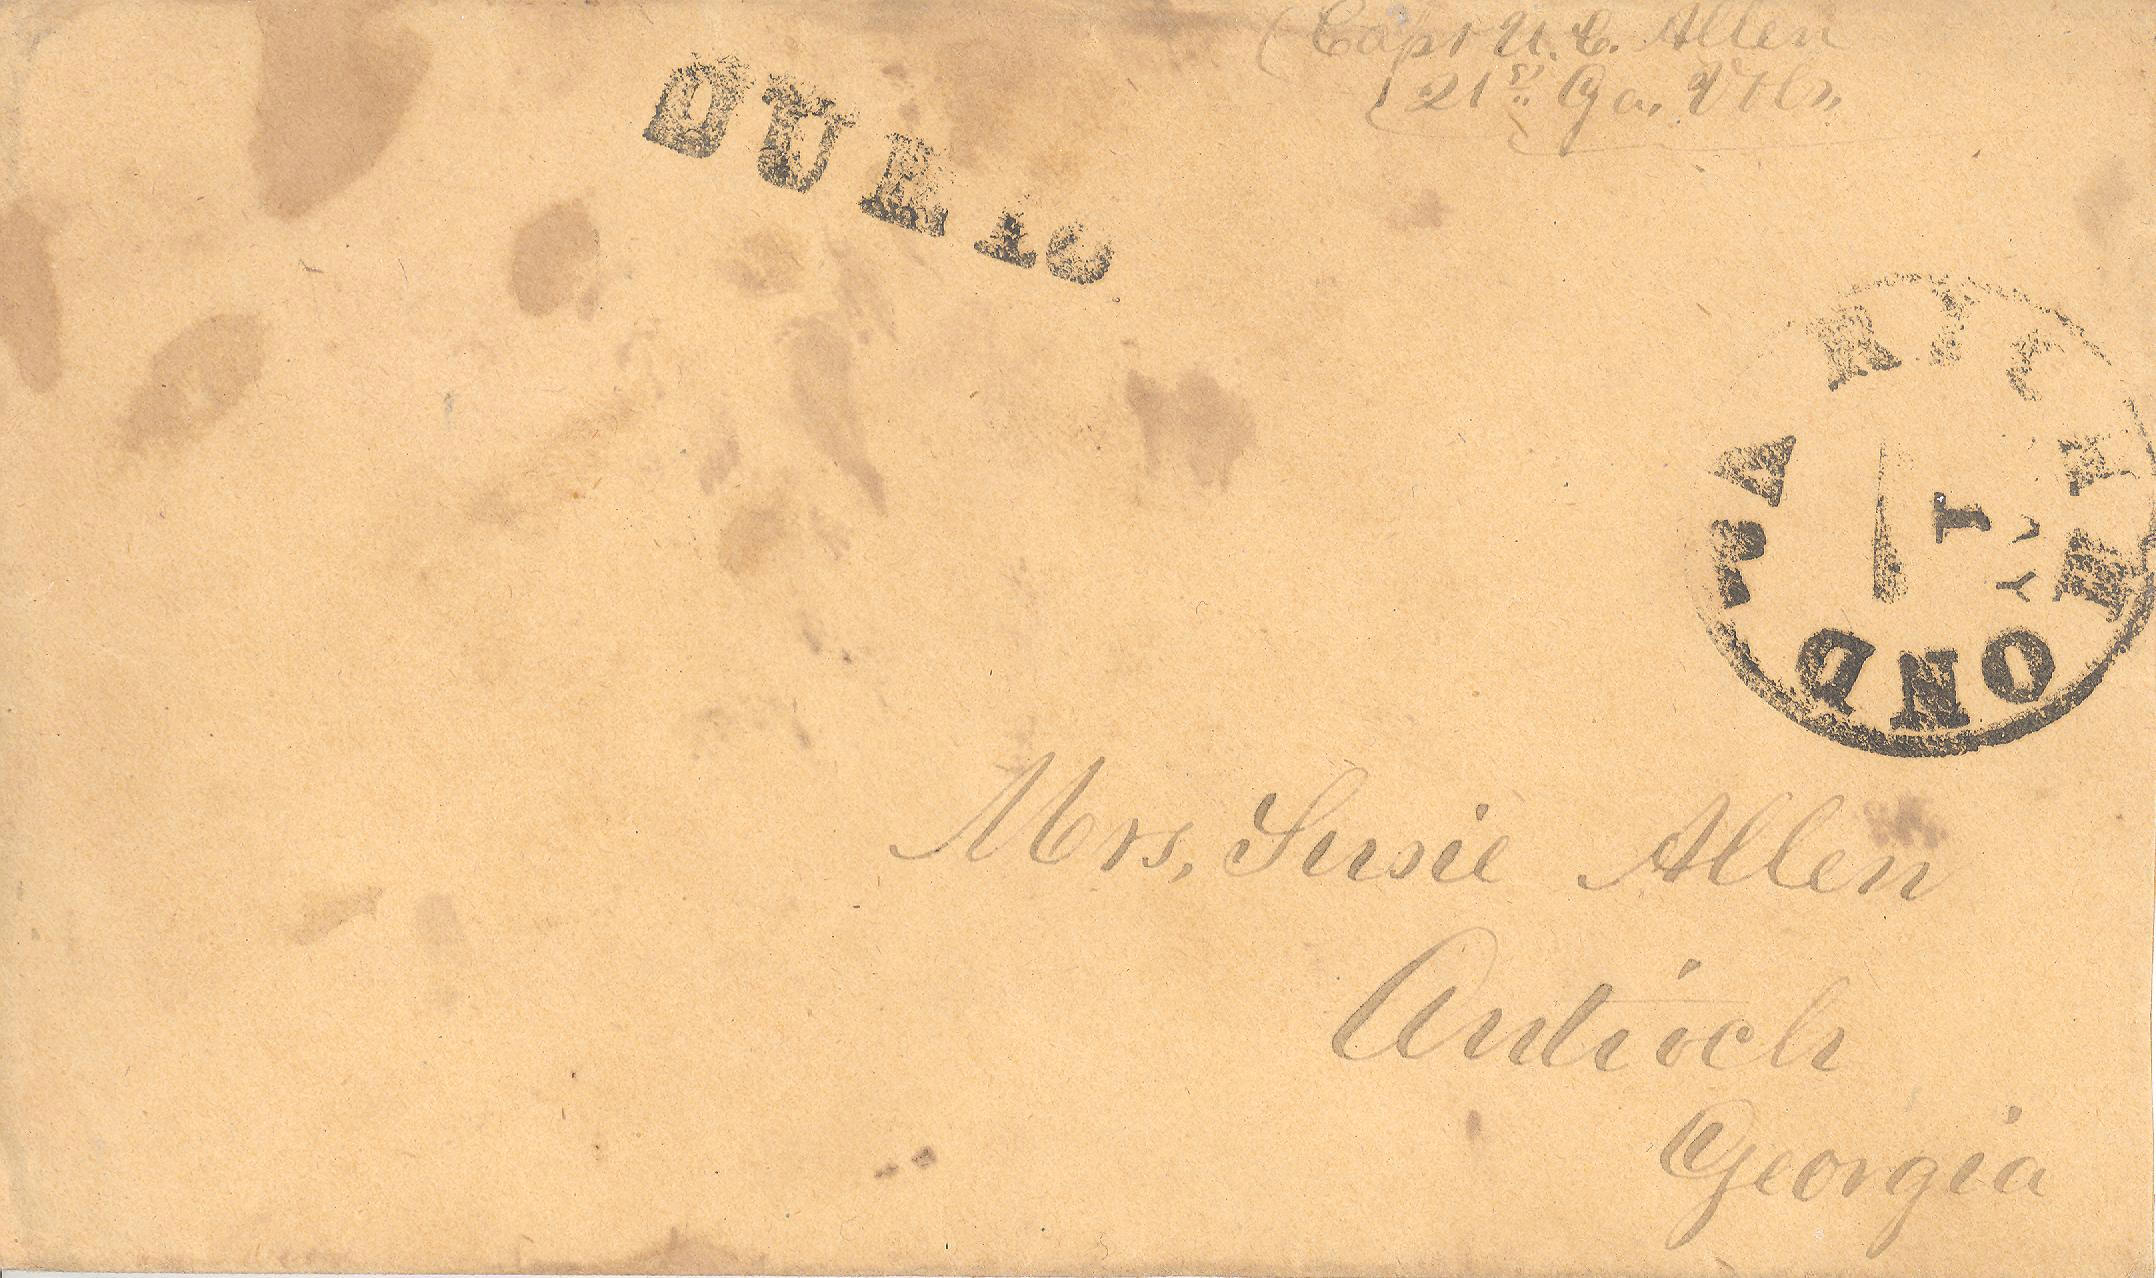 Capt U. C. Allen
21st Ga. Vols.
DUE 10
RICHMOND VA.
1
Mrs. Susie Allen
Antioch
Georgia